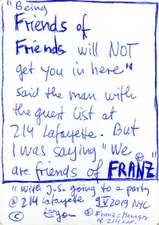 "Being
Friends of
Friends will NOT
get you in here"
said the man with
the guest list at
214 Lafayette. But
I was saying "We
are friends of FRANZ"
"with J.S. going to a party
@ 214 Lafayette 9 V 2019 NYC
©